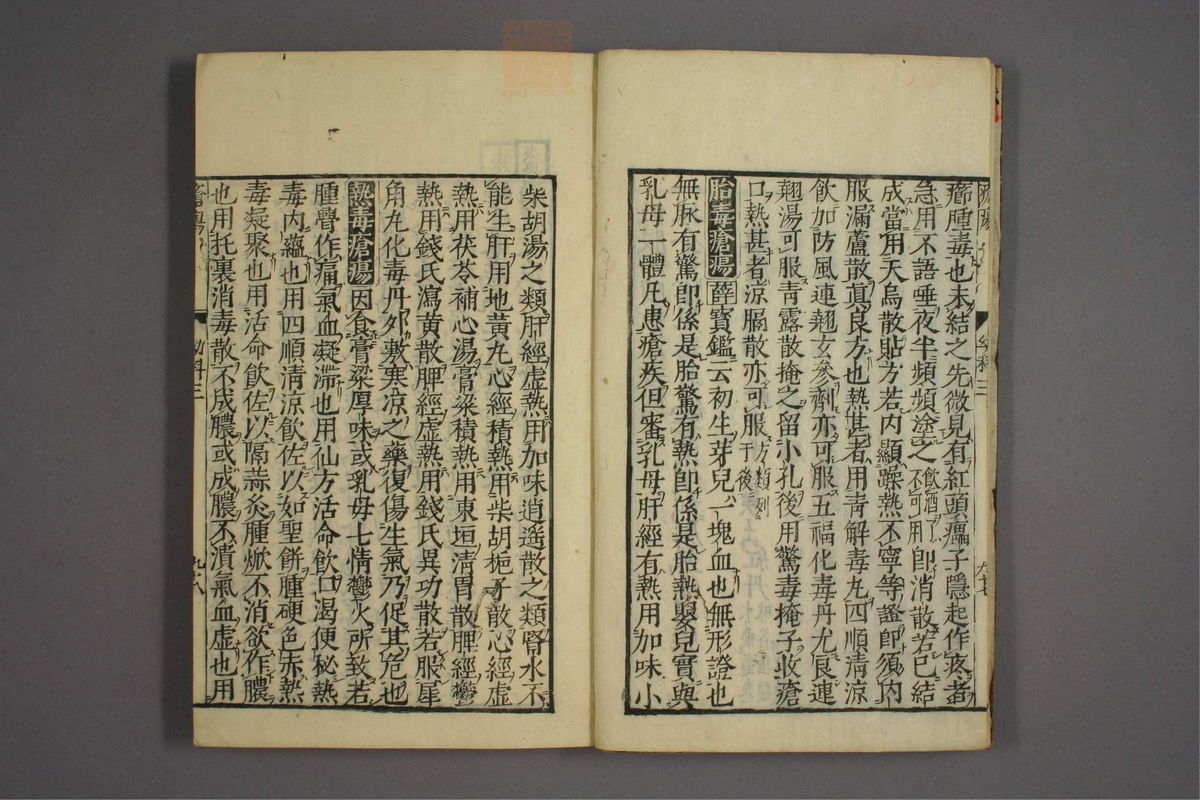 癤腫毒也未結之先微見有紅頭癟子隱起作疼者
急用不語唾夜半頻頻塗之飲酒人不可用即消散若已結
成當用天烏散貼方若内顯躁熱不寧等證即須内
服漏蘆散真良方也熱甚者用青解毒丸四順清涼
飲加防風連翹玄參劑亦可服五福化毒丹尤良連
翹湯可服青露散掩之留小孔後用驚毒掩子收瘡
口熱甚者涼膈散亦可服方類列于後
胎毒瘡瘍薛寶鑑云初生芽兒一塊血也無形證也
無脉有驚即係是胎驚有熱即係是胎熱嬰兒實與
乳母一體凡患瘡疾但審乳母肝經有熱用加味小
幼科三
九七
柴胡湯之類肝經虛熱用加味逍遙散之類腎水不
能生肝用地黃丸心經積熱用柴胡梔子散心經虛
熱用茯苓補心湯膏粱積熱用東垣清胃散脾經鬱
熱用錢氏瀉黃散脾經虛熱用錢氏異功散若服犀
角丸化毒丹外敷寒凉之藥復傷生氣乃促其危也
熱毒瘡瘍因食膏粱厚味或乳母七情鬱火所致若
腫臀作痛氣血凝滯也用仙方活命飲口渴便秘熱
毒内蘊也用四順清涼飲佐以如聖餅腫硬色赤熱
毒凝聚也用活命飲佐以隔蒜灸腫焮不消欲作膿
也用托裏消毒散不成膿或成膿不潰氣血虛也用
瘡瘍
幼科三
九八